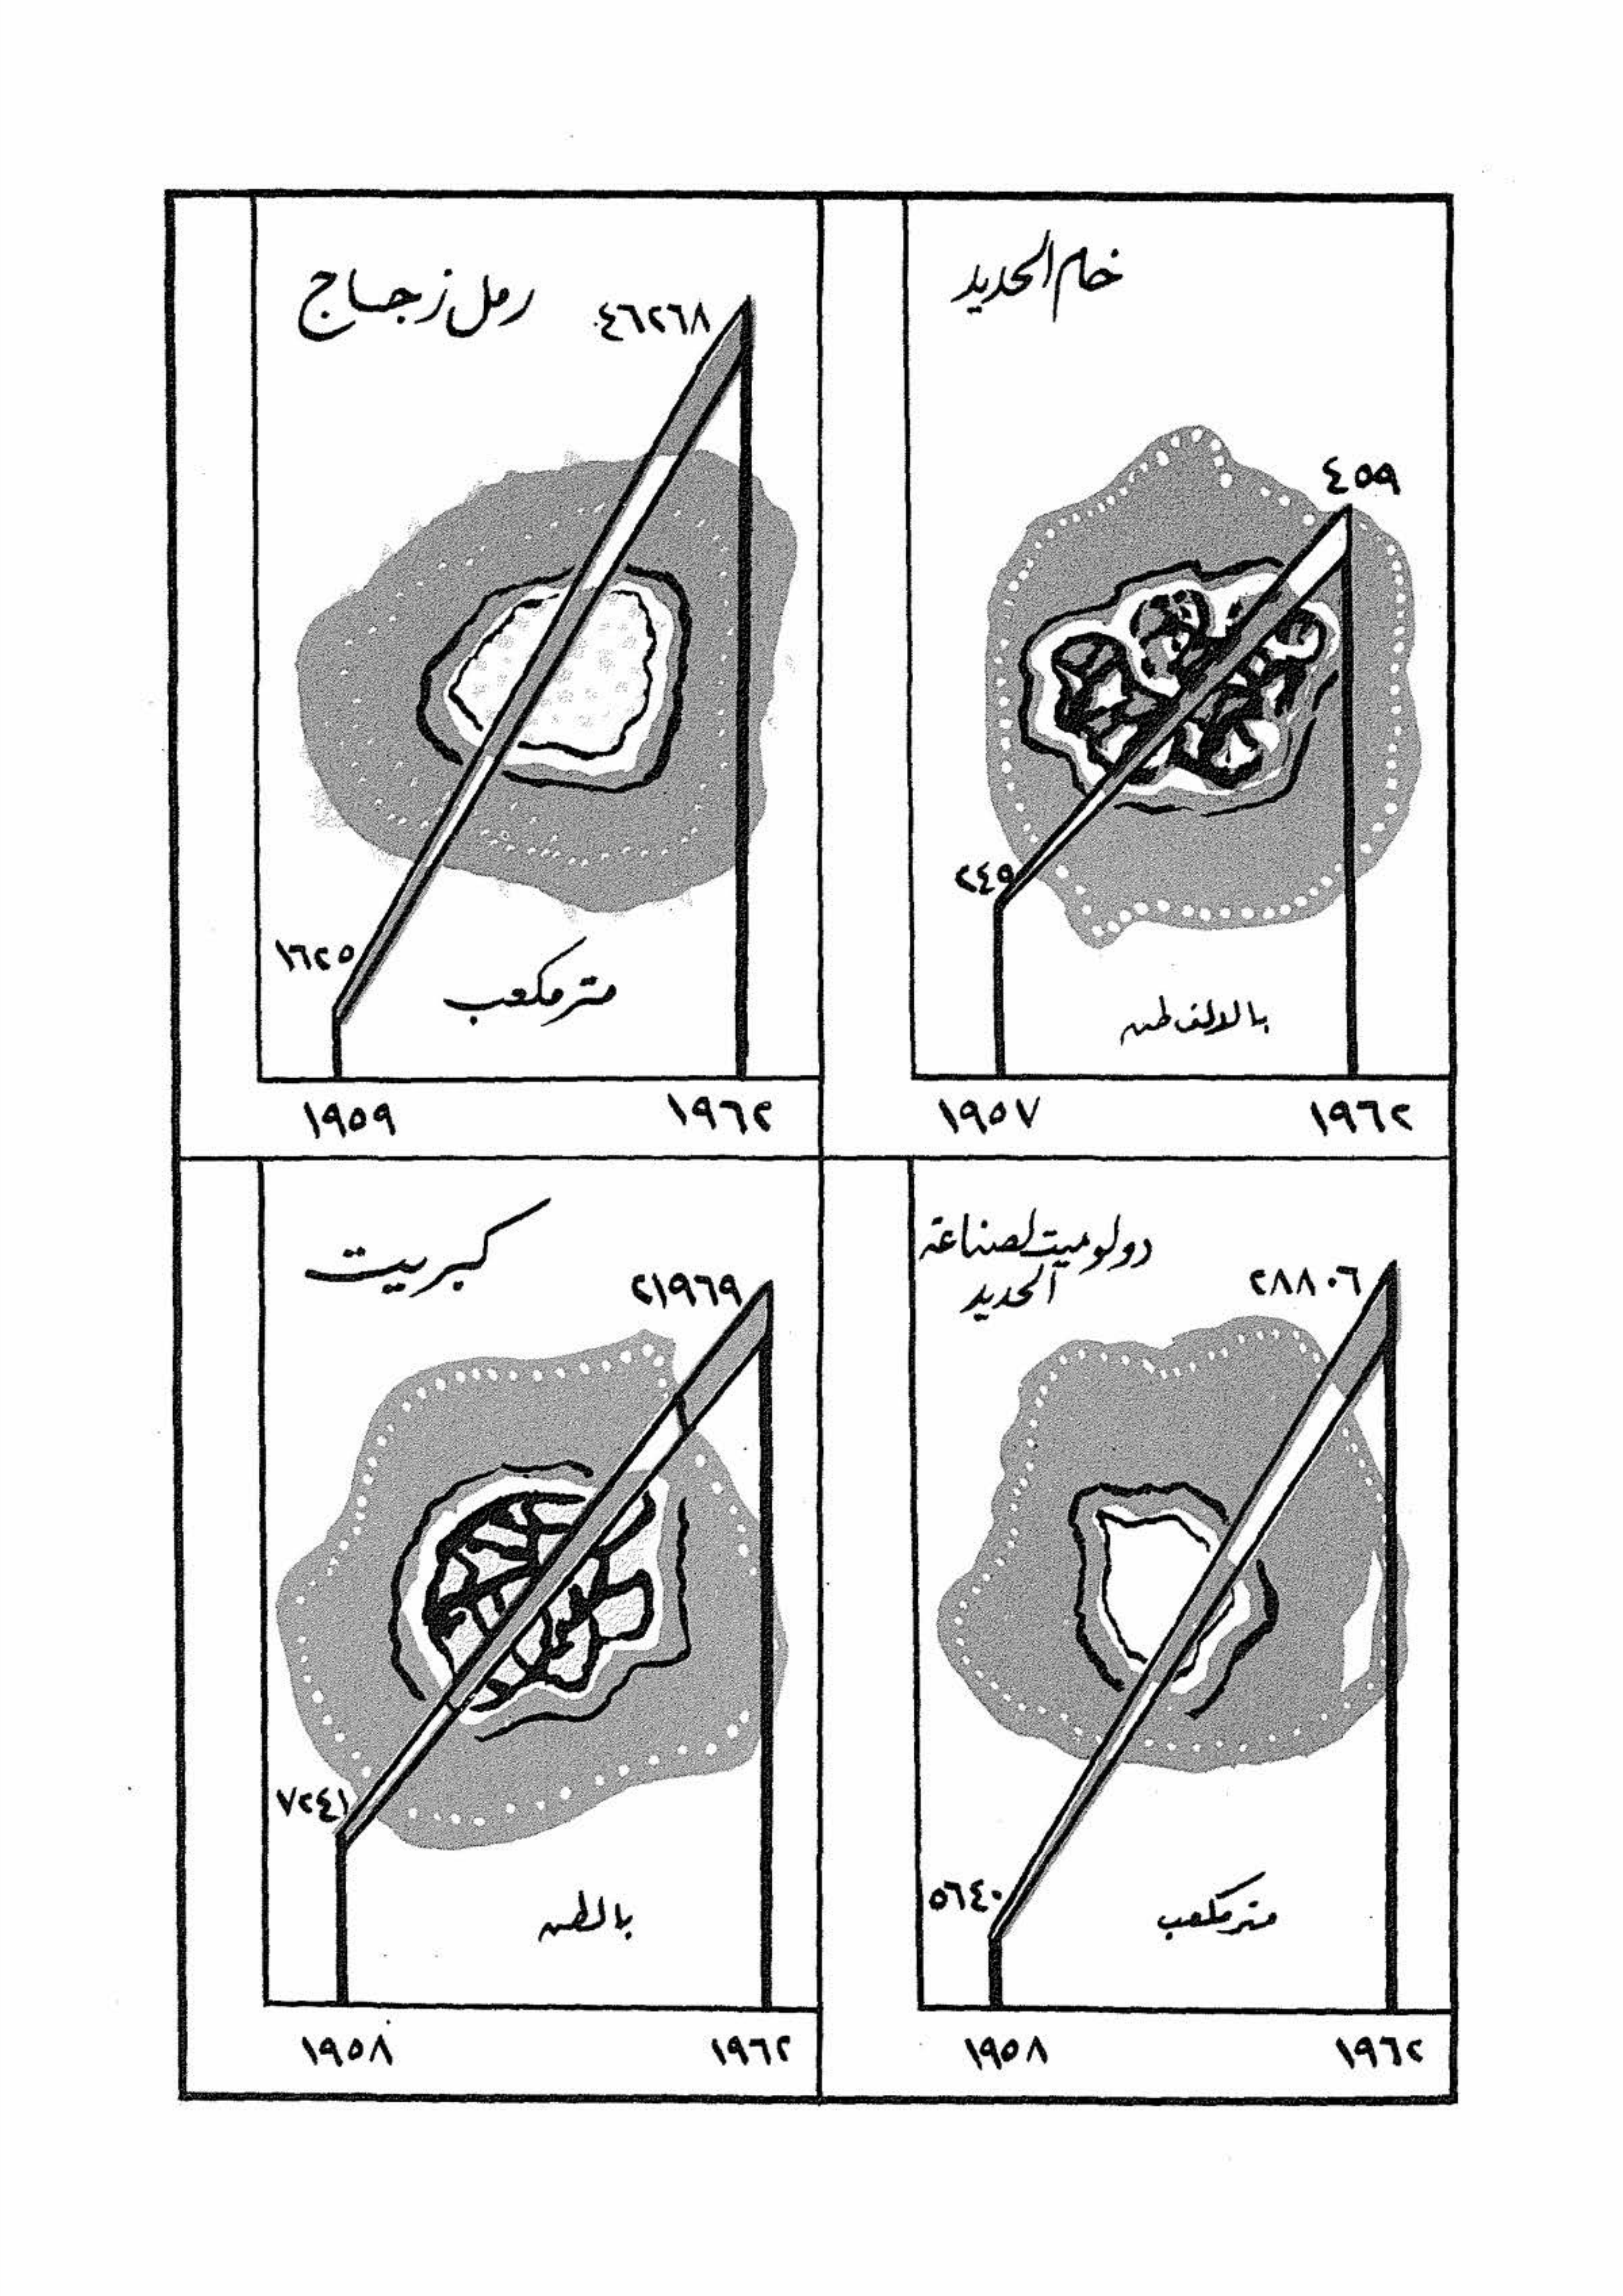 خام الحديد
٤٥٩
٢٤٩
بالالف طن
١٩٥٧ ١٩٦٢
رمل زجاج
٤٦٢٦٨
١٦٢٥
متر مكعب
١٩٥٩ ١٩٦٢
دولوميت لصناعة
الحديد
٢٨٨٠٦
٥٦٤٠
متر مكعب
١٩٥٨ ١٩٦٢
كبريت
٢١٩٦٩
٧٢٤١
بالطن
١٩٥٨ ١٩٦٢